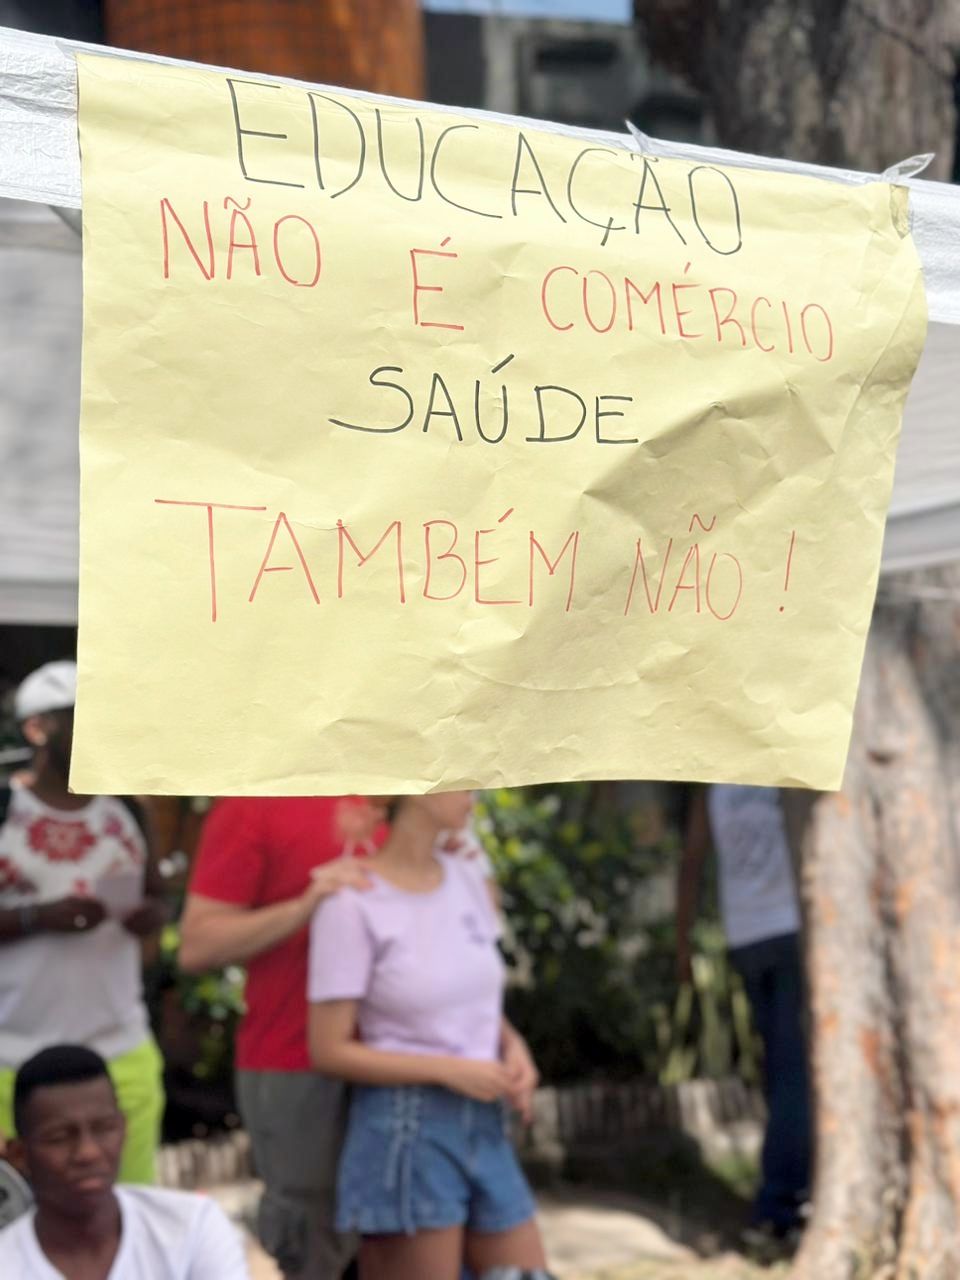 EDUCAÇÃO
NÃO É COMÉRCIO
SAÚDE
TAMBÉM NÃO!